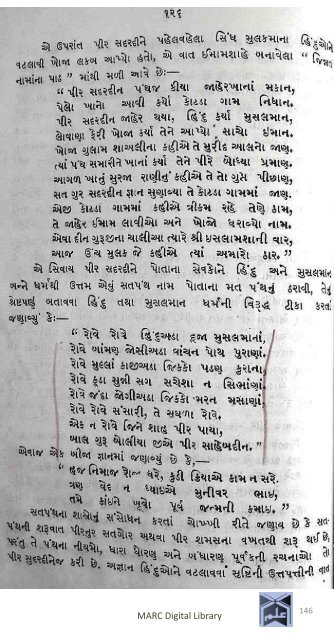 ૧૨૬
એ ઉપરાંત પીર સદરદીને પહેલવહેલા સિંધ મુલકમાના હિંદુઓને
વટલાવી ખોજા લકબ આપ્યો હતો, એ વાત ઈમામશાહે બનાવેલા
નામાંના પાઠ” માંથી મળી આવે છે:—
“પીર સદરદીન પંથજ કીયા જાહેરખાનાં મકાન,
પેલો ખાનો આવી કર્યો કોટડા ગામ નિધાન,
પીર સદરદીન જાહેર થયા, હિંદુ કર્યા મુસલમાન,
લોવાણા ફેરી ખોજા કર્યા તેને આપ્યો સાચો ઈમાન,
ખોજા ગુલામ શાઅલીના કહીએ તે મુરીદ આલને જાણ,
ત્યાં પંથ સમારીને ખાનાં કર્યા તેને પીરે બોલ્યા પ્રમાણ,
આગળ ખાનું સુરજા રાણીનું કહીએ તે તો ગુપ્ત પીછાણ,
સત ગુર સદરદીન જ્ઞાન સુણાવ્યા તે કોટડા ગામમાં જાણ.
એજી કોટડા ગામમાં કહીએ ત્રીકમ રહે તેણે ઠામ,
તે જાહેર ઈમામ લાવીઆ અને ખોજો ધરાવ્યો નામ.
એવા દીન ગુરૂજીના ચાલીઆ ત્યારે શ્રી ઇસલામશાની વાર,
આજ ઉંચ મુલક જે કહીએ ત્યાં અમારો ઠાર.”
એ સિવાય પીર સદરદીને પોતાના સેવકોને હિંદુ અને મુસલમાન
બન્ને ધર્મથી ઉત્તમ એવું સતપંથ નામ પોતાના મત પંથનું ઠરાવી, તેનું
શ્રેષ્ઠપણું બતાવવા હિંદુ તથા મુસલમાન ધર્મની વિરૂદ્ધ ટીકા કરતાં
જણાવ્યું કે:—
“રોવે રોવે હિંદુઅડા દૂજા મુસલમાનાં,
રોવે બાંમણ જોસીઅડા વાંચન પોથ પુરાણાં.
રોવે મુલ્લાં કાજીઅડા જિકકો પઢણ કુરાના,
રોવે કૂડા સુન્ની સગ સચેશા ન સિભાણાં.
રોવે જંદા જોગીઅડા જિકકો મરન મસાણાં,
રોવે રોવે સંસારી, તે સઘળા રોવે,
એક ન રોવે જિને શાહ પીર પાયા,
બાલ ગુરૂ બોલીયા જીએ પીર સાહેબદીન.”
એવાજ એક બીજા જ્ઞાનમાં જણાવ્યું છે કે,—
“હુજ નિમાજ રોજા ધરે, કુડી ક્રિયાએ કામ ન સરે.
ત્રણ વેદ ન ધ્યાઈએ મુનીવર ભાઇ,
તમે કાંઇને ખૂવો પૂર્વ જન્મની કમાઇ.”
સતપંથના શાસ્ત્રોનું સંસોધન કરતાં ચોખ્ખી રીતે જણાવ છે કે સત-
પંથની શરૂવાત પીરનુર સતગોર અથવા પીર શમસના વખતથી શરૂ થઈ છે,
પરંતુ તે પંથના નીયમો, ધારા ધોરણ અને બંધારણ પૂર્વકની રચનાઓ તો
પીર સુદરદીનેજ કરી છે. અજ્ઞાન હિંદુઓને વટલાવવા સૃષ્ટિની ઉત્પત્તીની વાત
MARC Digital Library
146